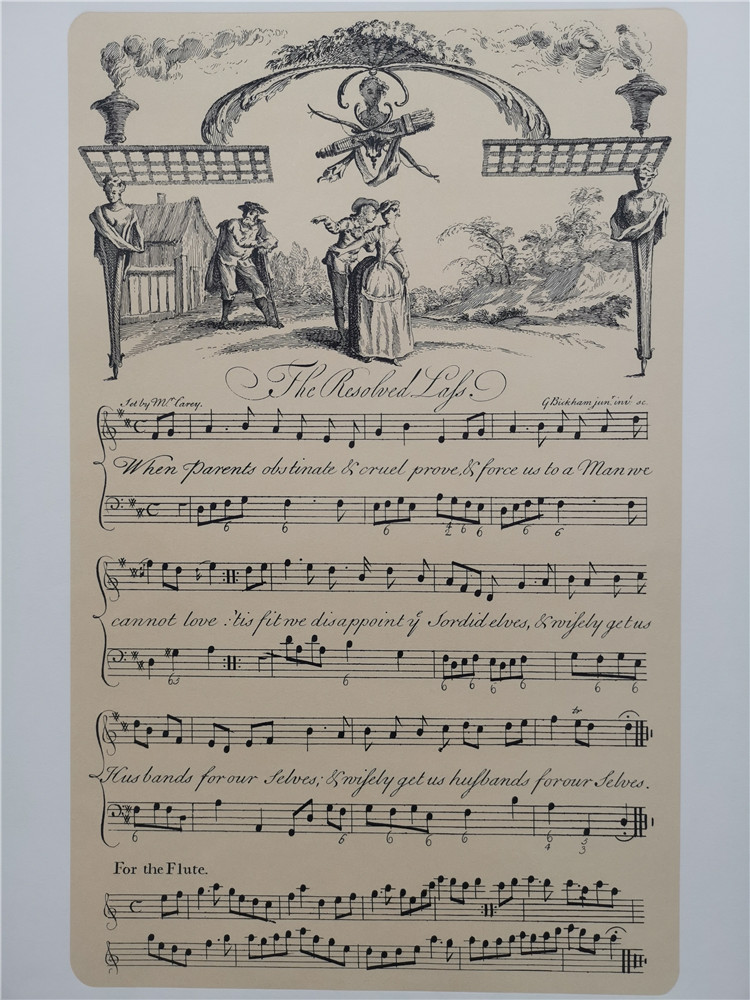 The Resolved Laſs.
Set by Mr. Carey.
G Bickham junr. invt sc.
When Parents obstinate & cruel prove, & force us to a Man we
6 6 6 6 6 4 2 6 6 6 6
cannot love : 'tis fit we disappoint ye Sordid elves, & wiſely get us
63 6 6 6 6 6 6 6 6
tr
Husbands for our Selves; & wiſely get us huſbands for our Selves.
6 6 6 6 6 6 6 4 5 3
For the Flute.